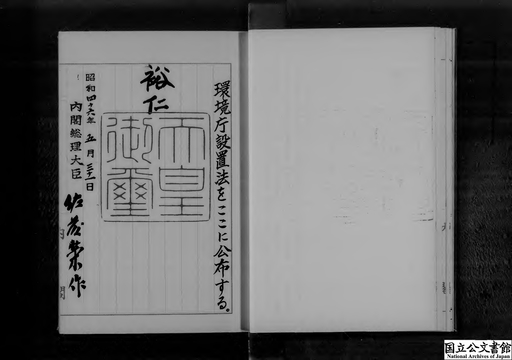 環境庁設置法をここに公布する。
裕仁
天皇
御璽
昭和四十六年五月三十一日
内閣総理大臣 佐藤榮作
国立公文書館
National Archives of Japan